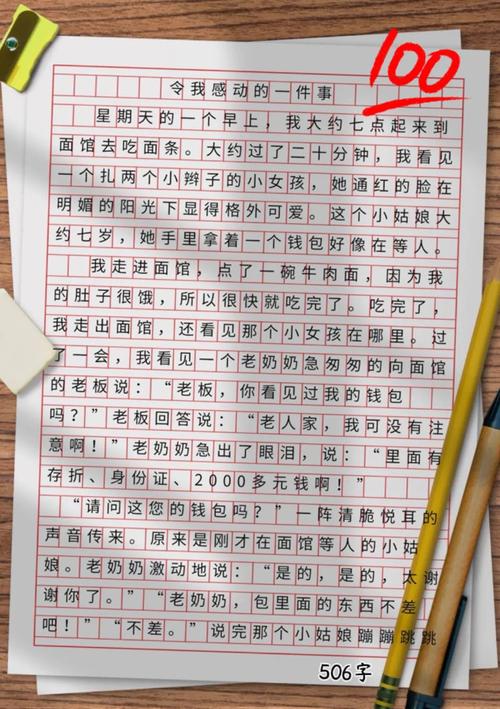 100
令我感动的一件事
星期天的一个早上，我大约七点起来到
面馆去吃面条。大约过了二十分钟，我看见
一个扎两个小辫子的小女孩，她通红的脸在
明媚的阳光下显得格外可爱。这个小姑娘大
约七岁，她手里拿着一个钱包好像在等人。
我走进面馆，点了一碗牛肉面，因为我
的肚子很饿，所以很快就吃完了。吃完了，
我走出面馆，还看见那个小女孩在哪里。过
了一会，我看见一个老奶奶急匆匆的向面馆
的老板说：“老板，你看见过我的钱包
吗？”老板回答说：“老人家，我可没有注
意啊！”老奶奶急出了眼泪，说：“里面有
存折、身份证、2000多元钱啊！”
“请问这您的钱包吗？”一阵清脆悦耳的
声音传来。原来是刚才在面馆等人的小姑
娘。老奶奶激动地说：“是的，是的，太谢
谢你了。”“老奶奶，包里面的东西不差
吧！”“不差。”说完那个小姑娘蹦蹦跳跳
506字